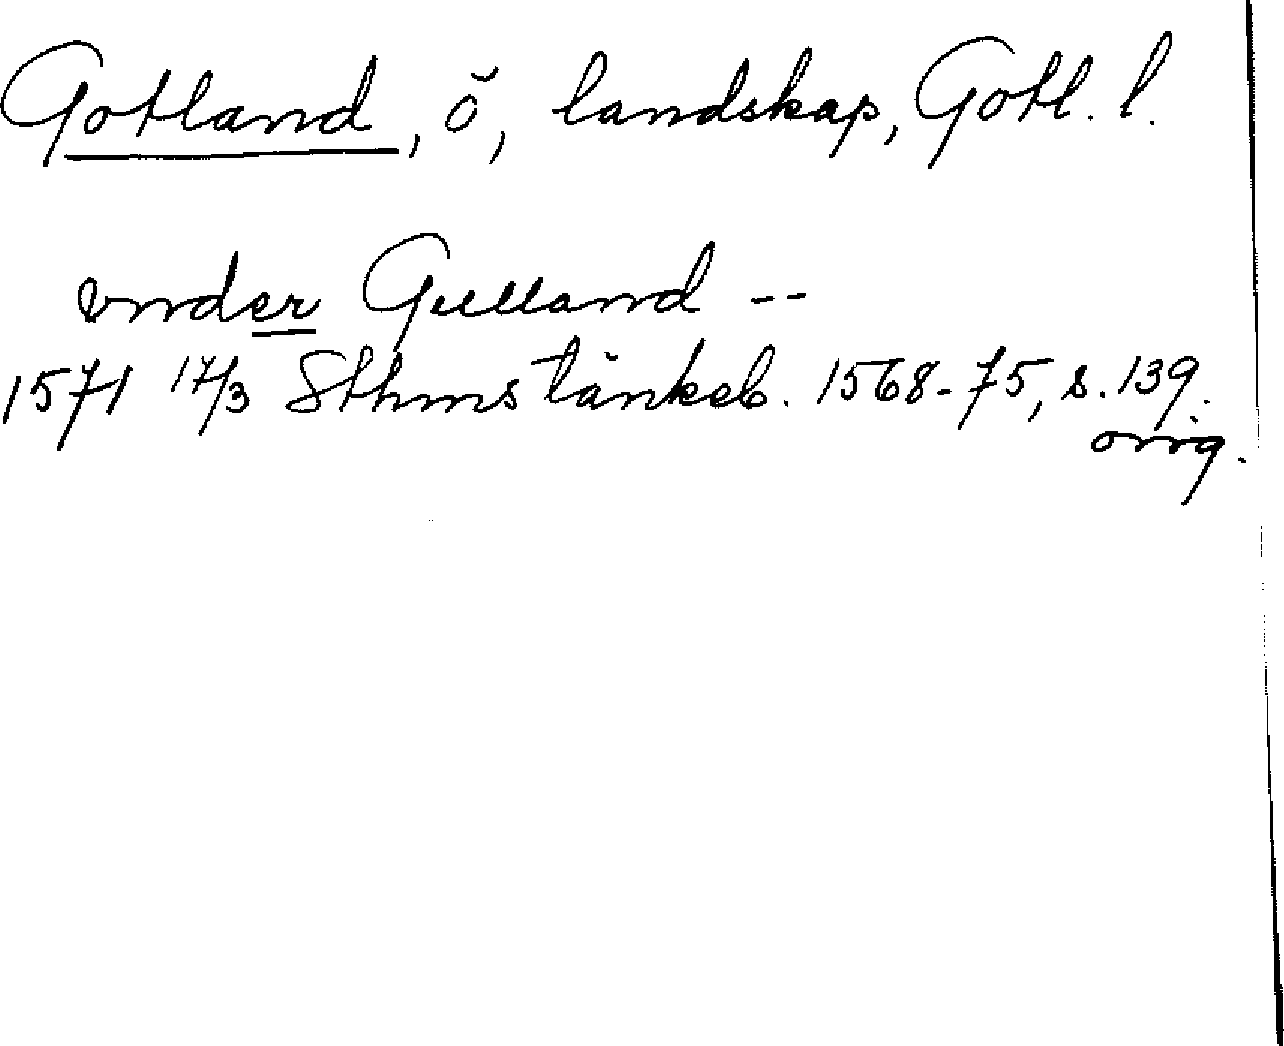 Gotland, ö, landskap, Gotl. l.
vnder Gulland --
1571 17/3 Sthms tänkeb. 1568-75, s. 139.
orig.